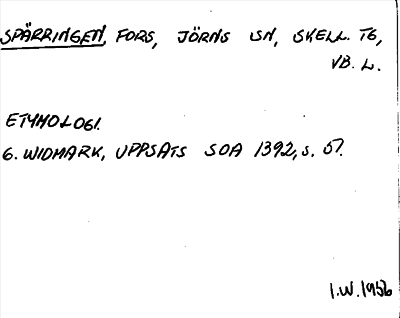 SPÄRRINGEN, FORS, JÖRNS SN, SKELL. TG,
VB. L.
ETYMOLOGI.
G. WIDMARK, UPPSATS SOA 1392, s. 51.
I.W. 1956